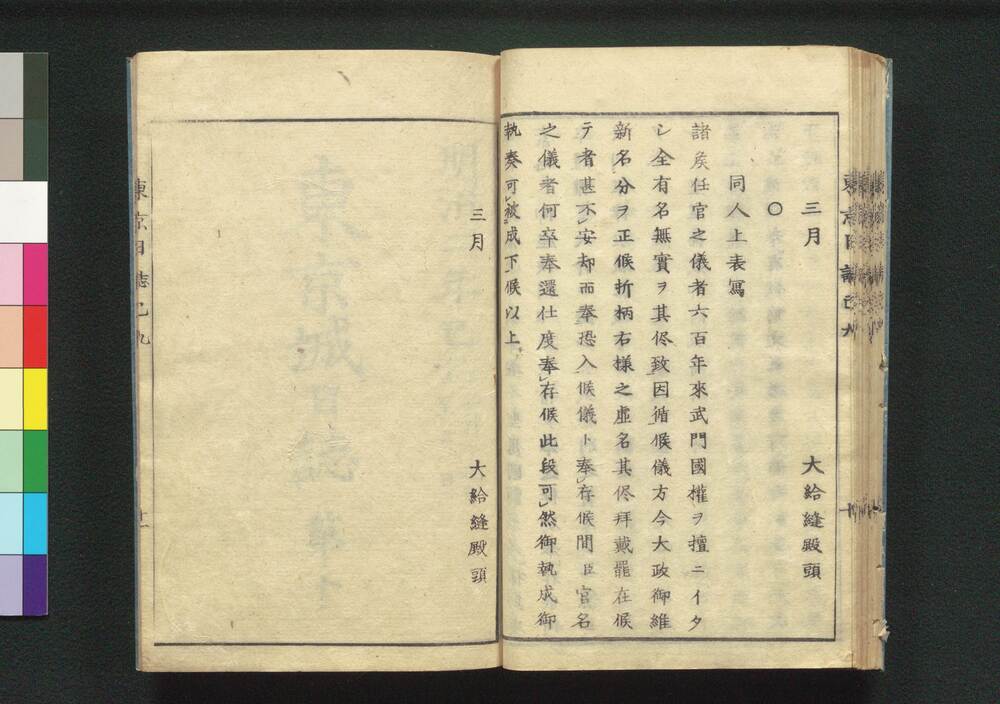 三月
大給縫殿頭
○
同人上表寫
諸矦任官之儀者六百年來武門國權ヲ擅ニイタ
シ全有名無實ヲ其侭致因循候儀方今大政御維
新名分ヲ正候折柄右樣之虛名其侭拜戴罷在候
テ者甚不安却而奉恐入候儀ト奉存候間臣官名
之儀者何卒奉還仕度奉存候此段可然御執成御
執奏可被成下候以上
三月
大給縫殿頭
東京日誌己九
十一